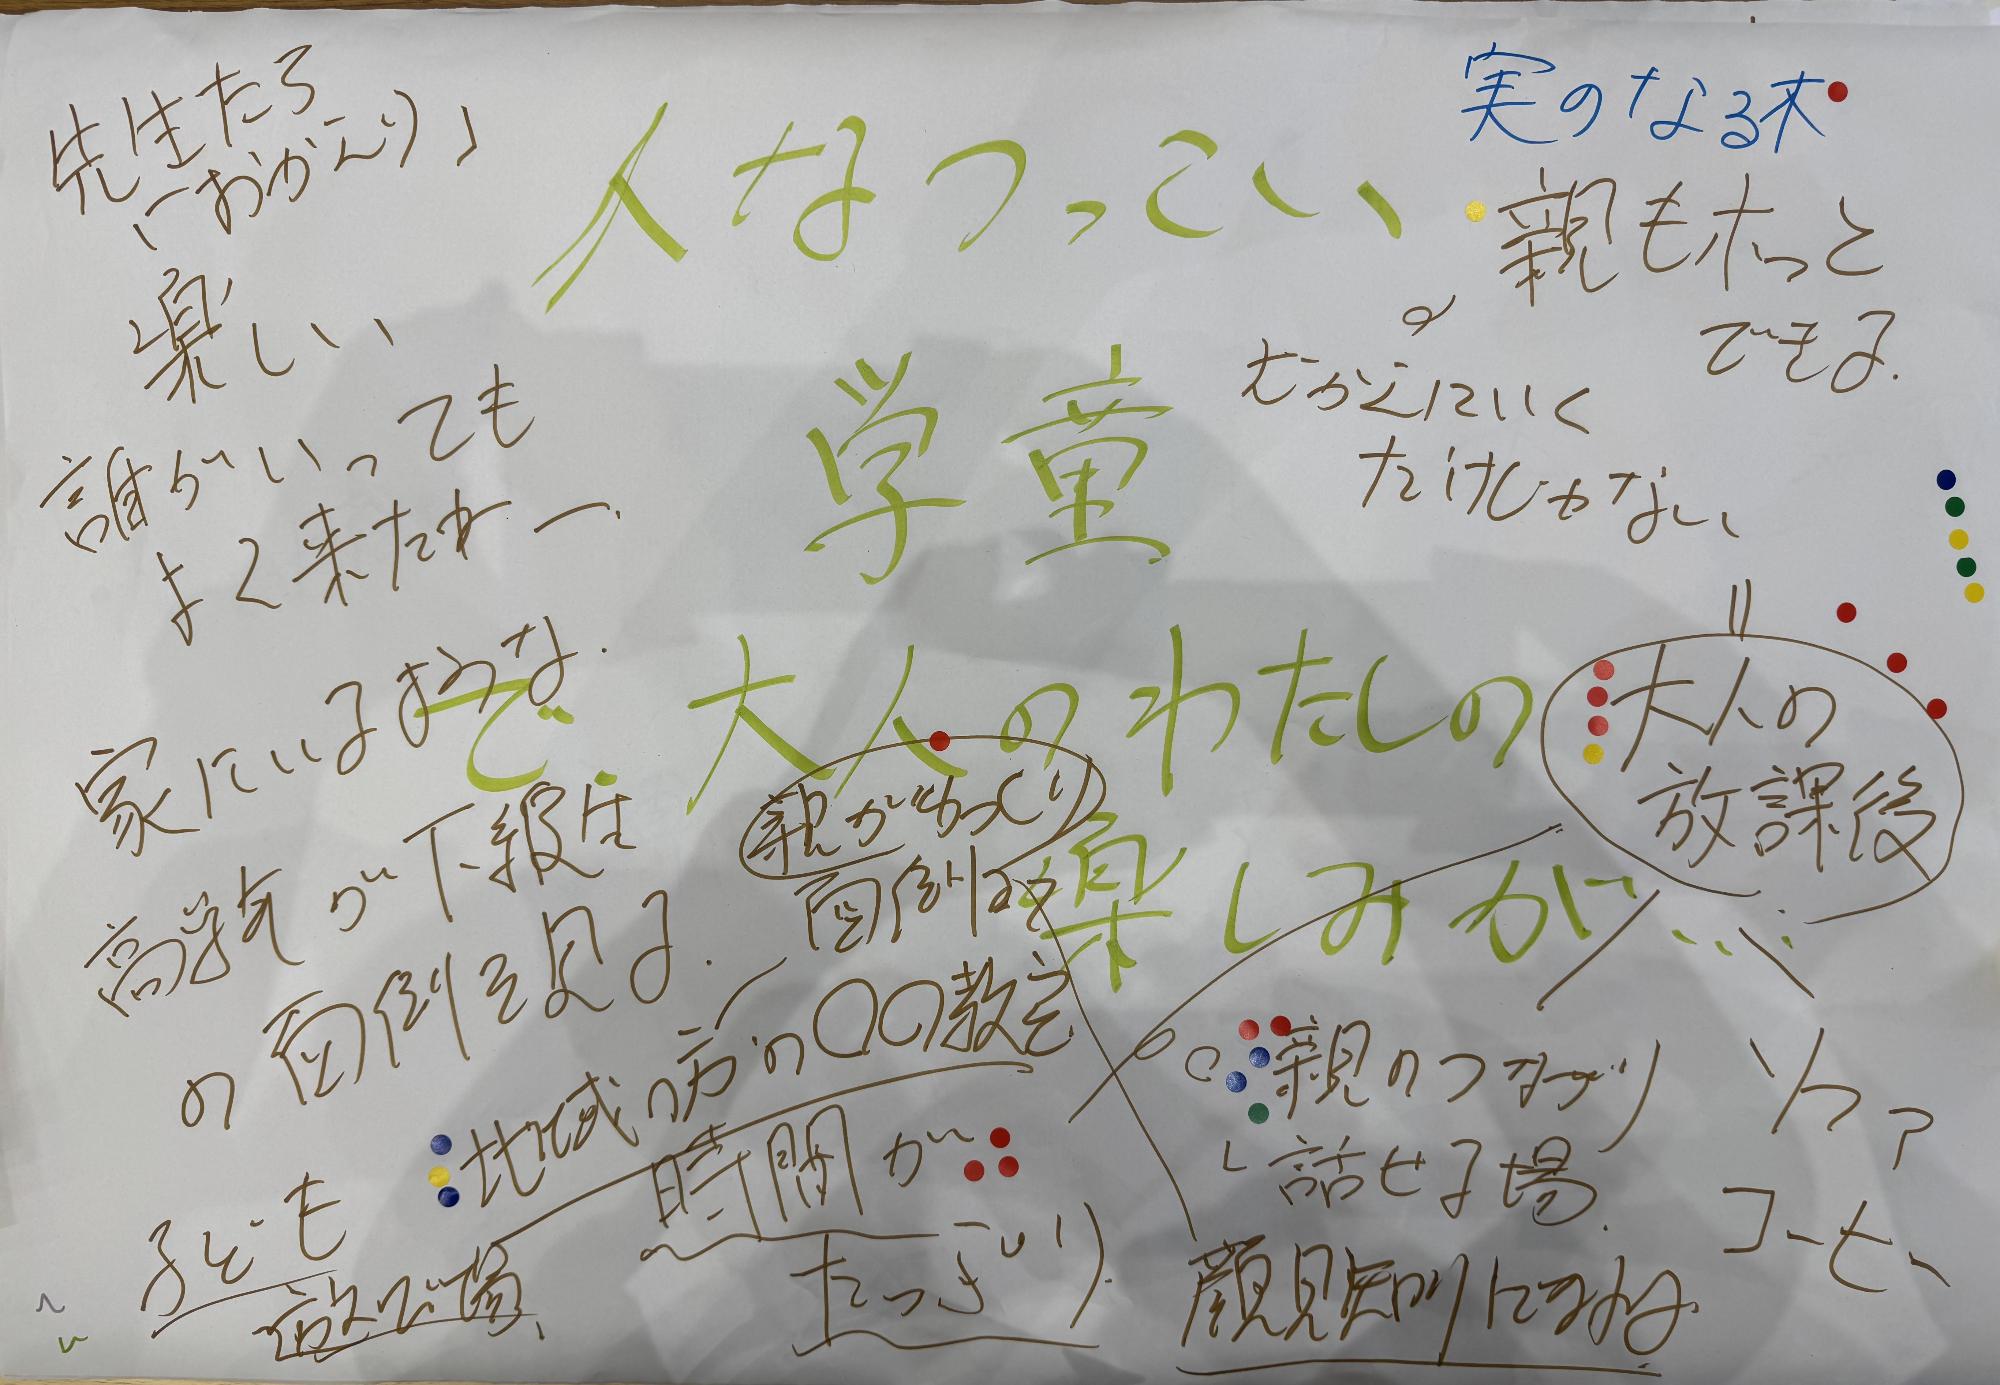 人なつっこい
学童
で、大人のわたしの
楽しみが…
先生たち
「おかえり」
楽しい
誰がいっても
よく来たねー。
家にいるような。
高学年が下級生
の面倒を見る。
実のなる木
親もホっと
できる。
むかえにいく
だけじゃない
大人の
放課後
親がゆっくり
面倒みて
地域の方の〇〇教室
時間が
たっぷり。
子ども
遊び場、
親のつながり
話せる場。
顔見知りになれる。
ソファ
コーヒー